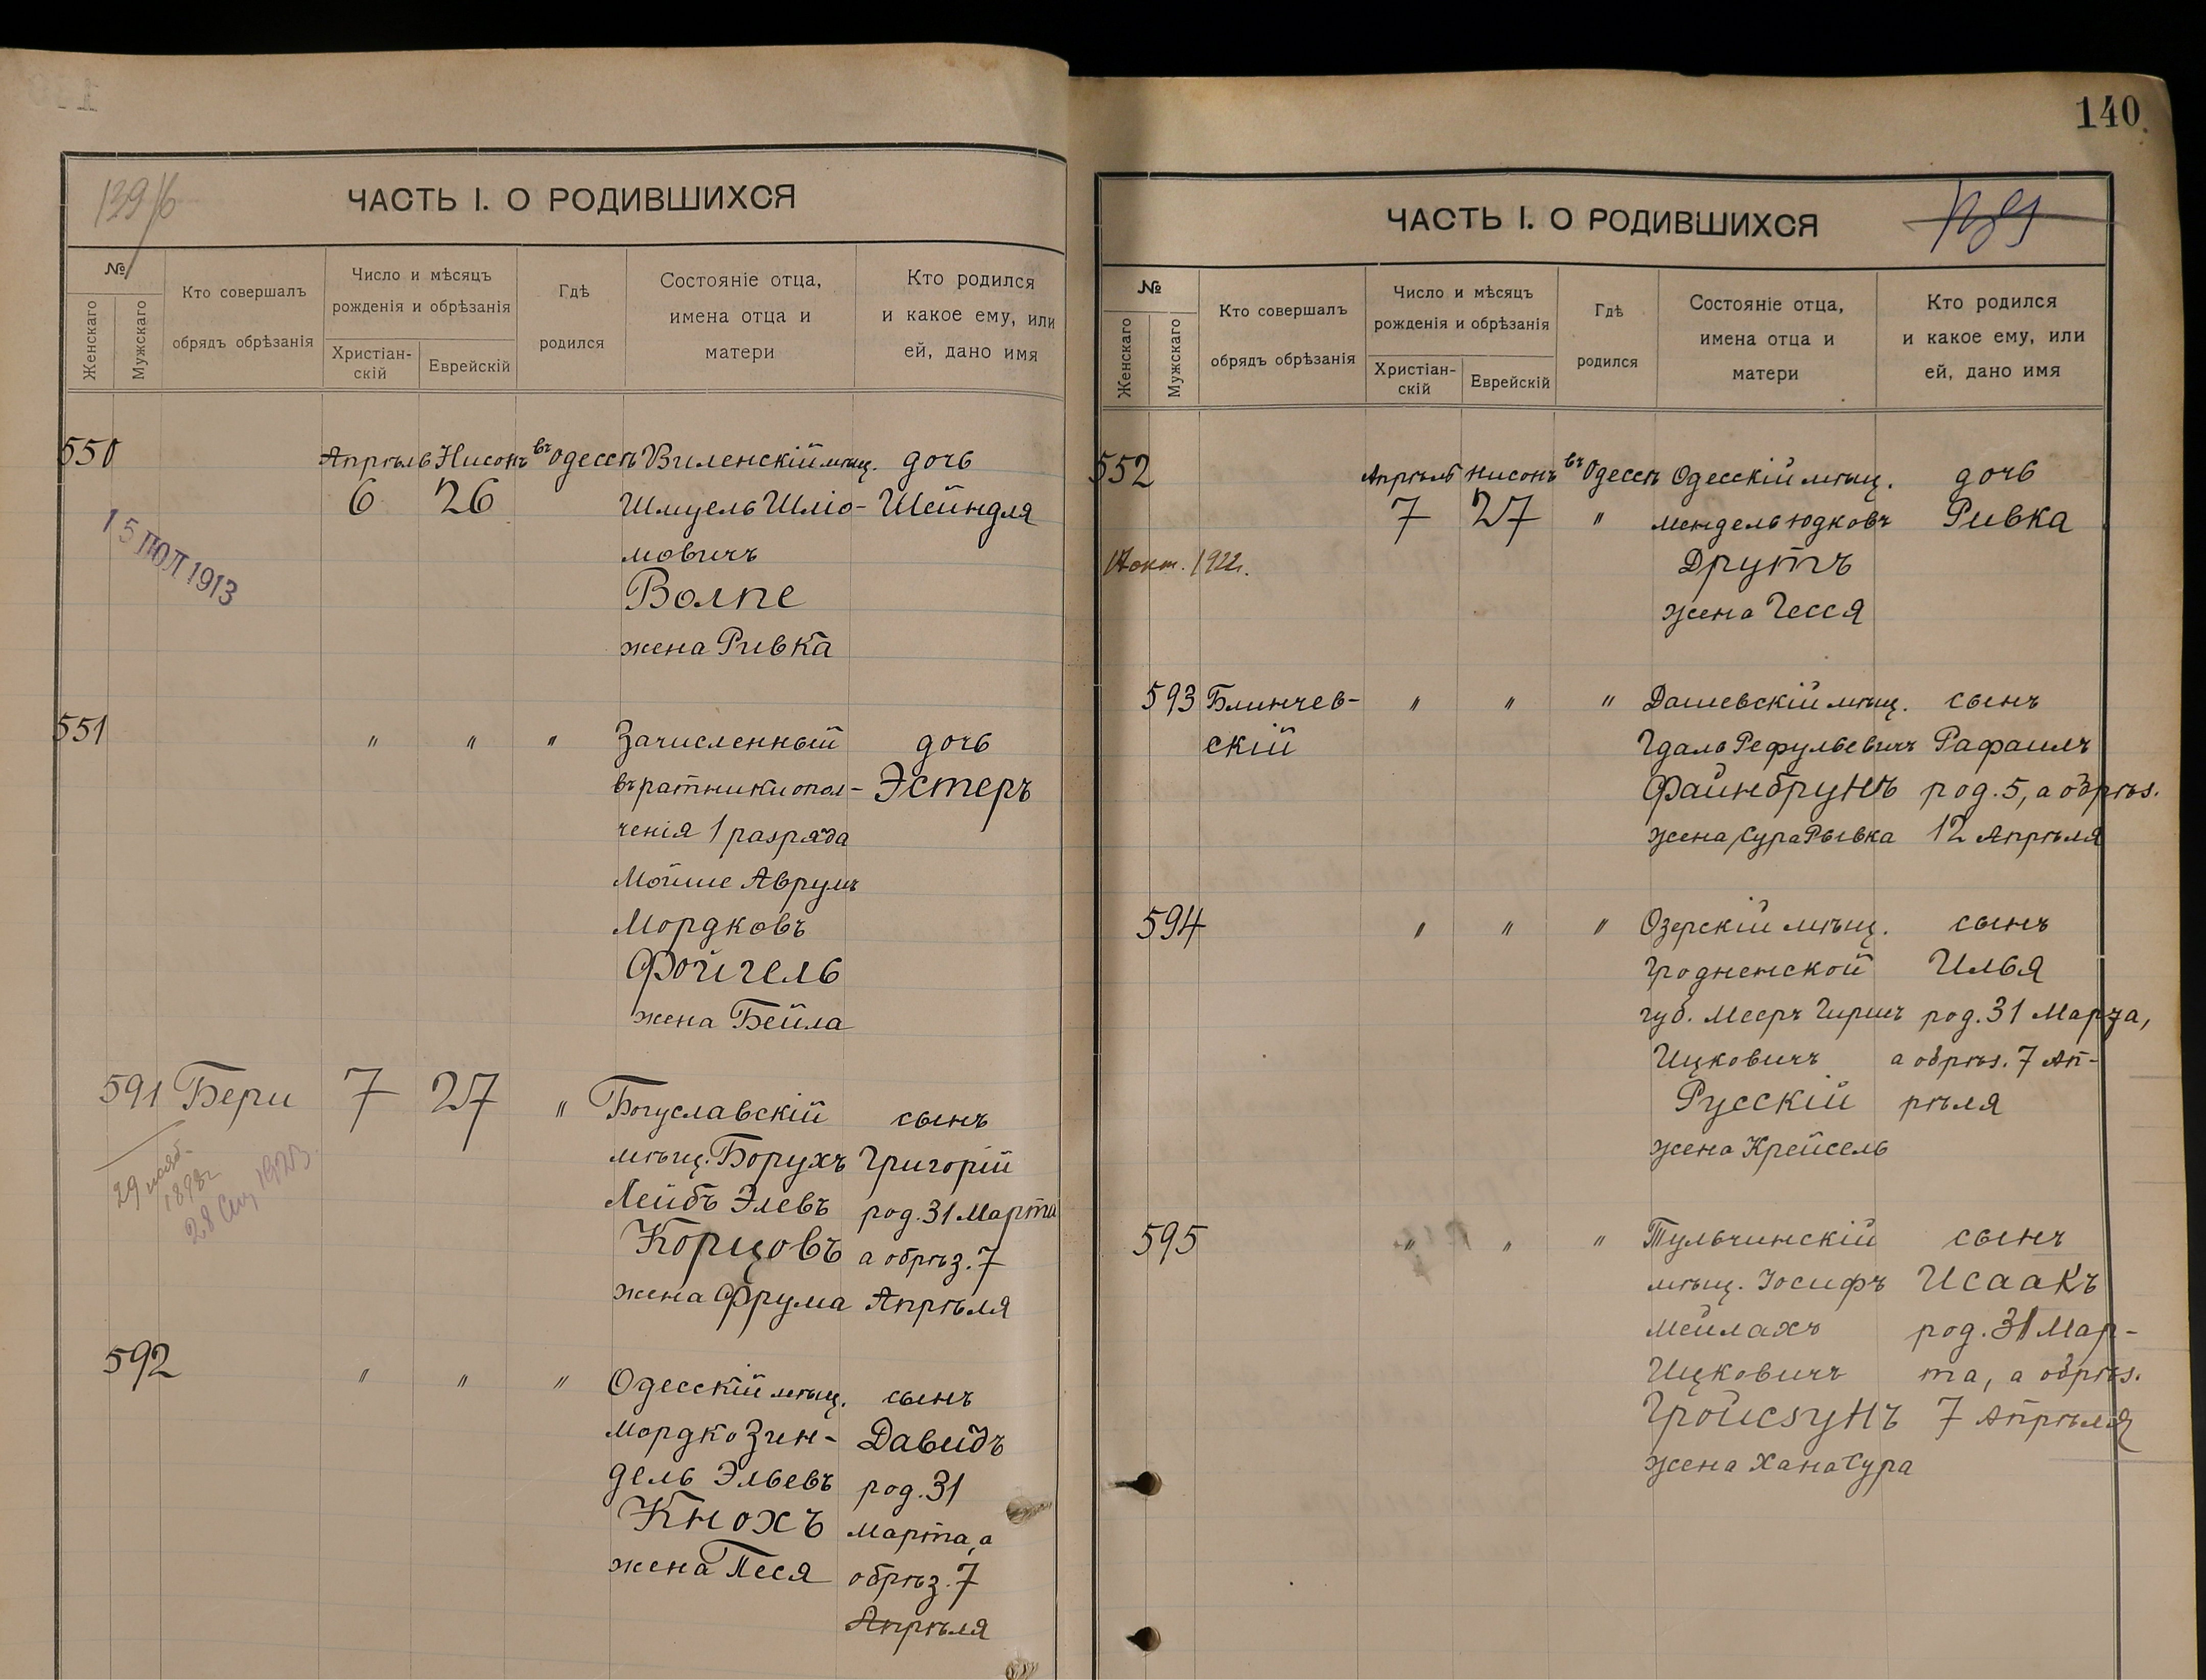 139/б
ЧАСТЬ I. О РОДИВШИХСЯ
№
Женскаго
Мужскаго
Кто совершалъ
обрядъ обрѣзанія
Число и мѣсяцъ
рожденія и обрѣзанія
Христіан-
скій
Еврейскій
Гдѣ
родился
Состояніе отца,
имена отца и
матери
Кто родился
и какое ему, или
ей, дано имя
550 Апрѣль Нисонъ въ Одессѣ Виленскій мѣщ. дочь
6 26 Шмуель Шліо- Шейндля
мовичъ
Волпе
жена Ривка
15 ІЮЛ 1913
551 " " " Зачисленный дочь
въ ратники опол- Эстеръ
ченія 1 разряда
Мойше Аврумъ
Мордковъ
Фойгель
жена Бейла
591 Бери 7 27 " Богуславскій сынъ
мѣщ. Борухъ Григорій
Лейбъ Элевъ род. 31 Марта
Корцовъ а обрѣз. 7
жена Фрума Апрѣля
29 нояб.
1898г
28 1923
592 " " " Одесскій мѣщ. сынъ
Мордко Зин- Давидъ
дель Эльевъ род. 31
Кнохъ марта, а
жена Песя обрѣз. 7
Апрѣля
140
ЧАСТЬ I. О РОДИВШИХСЯ
№
Женскаго
Мужскаго
Кто совершалъ
обрядъ обрѣзанія
Число и мѣсяцъ
рожденія и обрѣзанія
Христіан-
скій
Еврейскій
Гдѣ
родился
Состояніе отца,
имена отца и
матери
Кто родился
и какое ему, или
ей, дано имя
552 Апрѣль Нисонъ въ Одессѣ Одесскій мѣщ. дочь
7 27 " Мендель Юдковъ Ривка
окт. 1922г. Друтъ
жена Гесся
593 Блинчев- " " " Дашевскій мѣщ. сынъ
скій Гдаль Рефульевичъ Рафаилъ
Файнбрунъ род. 5, а обрѣз.
жена Сура Рывка 12 Апрѣля
594 " " " Озерскій мѣщ. сынъ
Гродненской Илья
губ. Мееръ Гиршъ род. 31 Марта,
Ицковичъ а обрѣз. 7 Ап-
Русскій рѣля
жена Крейсель
595 " " " Тульчинскій сынъ
мѣщ. Іосифъ Исаакъ
Мейлахъ род. 31 Мар-
Ицковичъ та, а обрѣз.
Гройсзунъ 7 Апрѣля
жена Хана Сура